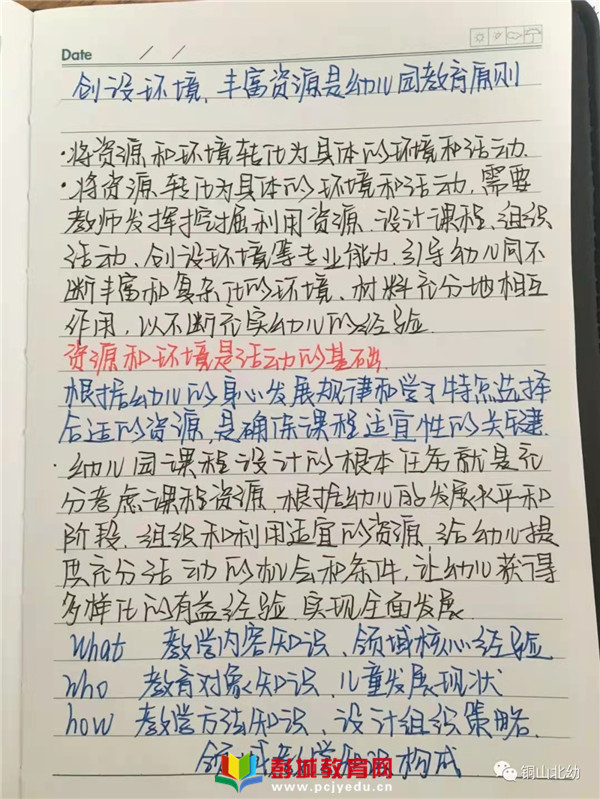 Date / /
创设环境、丰富资源是幼儿园教育原则
·将资源和环境转化为具体的环境和活动.
·将资源转化为具体的环境和活动,需要
教师发挥挖掘利用资源、设计课程、组织
活动、创设环境等专业能力.引导幼儿同不
断丰富和复杂化的环境、材料充分地相互
作用,以不断充实幼儿的经验.
资源和环境是活动的基础.
根据幼儿的身心发展规律和学习特点选择
合适的资源,是确保课程适宜性的关键.
·幼儿园课程设计的根本任务就是充
分考虑课程资源,根据幼儿的发展水平和
阶段,组织和利用适宜的资源,给幼儿提
供充分活动的机会和条件,让幼儿获得
多样化的有益经验,实现全面发展.
What 教学内容知识、领域核心经验
who 教育对象知识、儿童发展现状
how 教学方法知识、设计组织策略.
领域 构成
彭城教育网
www.pcjyedu.cn
铜山北幼